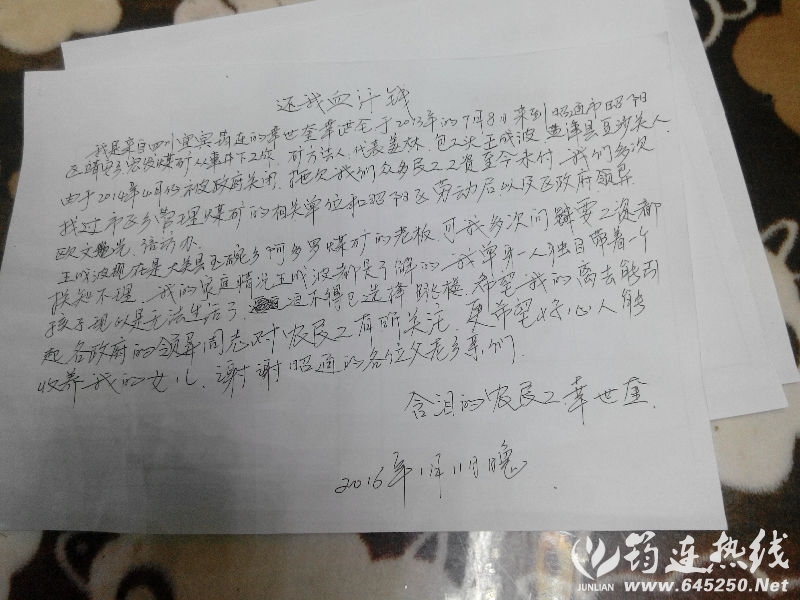 还我血汗钱
我是来自四川宜宾筠连的幸世奎幸世全于2013年的7月8日来到昭通市昭阳
区靖安乡宏发煤矿从事井下工作,对方法人代表 林,包工头王成波 县豆沙关人
由于2014年4月份被政府关闭,拖欠我们众多民工工资至今未付,我们多次
找过市区乡管理煤矿的相关单位和昭阳区劳动局以及区政府领导
欧文 ,信访办.
王成波现在是大关县玉碗乡阿多罗煤矿的老板,可我多次问 要工资都
置之不理,我的家庭情况王成波都是了解的,我单身一人独自带着一个
孩子现以是无法生活了 迫不得已选择跳楼,希望我的离去能引
起各政府的领导同志对农民工有所关注,更希望好心人能
收养我的女儿,谢谢昭通的各位父老乡亲们.
含泪的农民工幸世奎.
2016年1月11日晚.
筠连热线
JUNLIAN
www.645250.Net